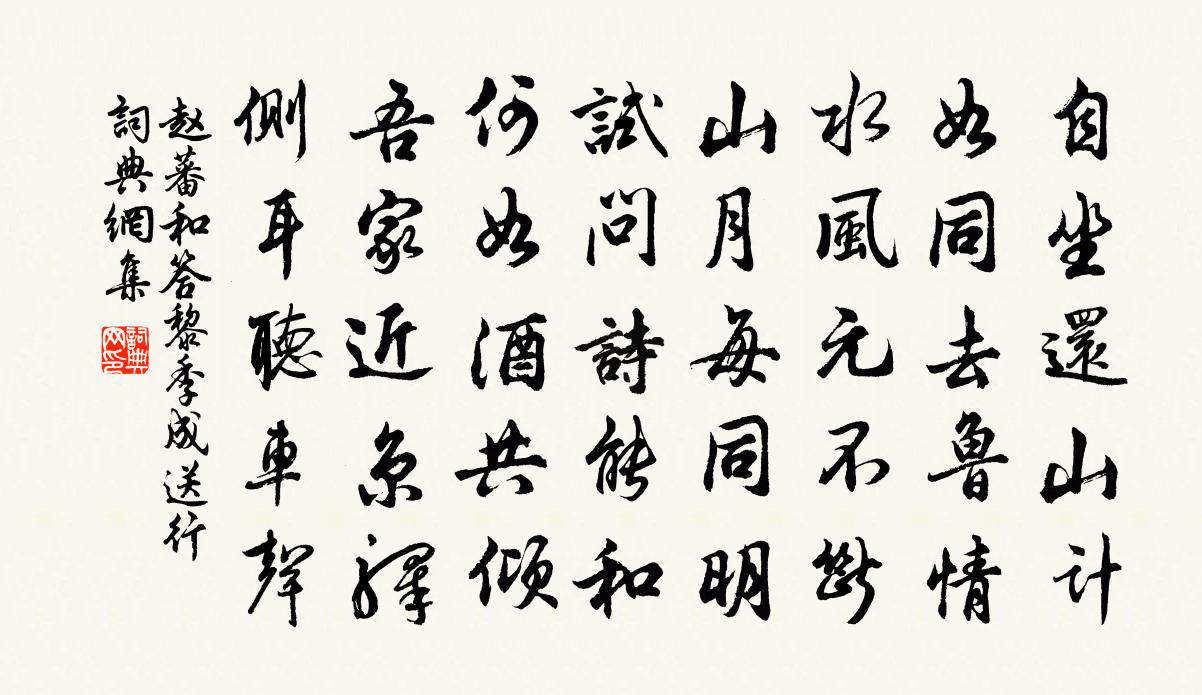 自坐還山計
如同去魯情
水風元不斷
山月每同明
試問詩能和
何如酒共傾
吾家近京驛
側耳聽車聲
赵蕃和答黎季成送行
詞典網集
詞典网印